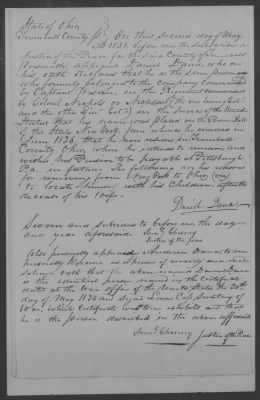 State of Ohio
Trumbull County SS On this Second day of May
AD 1838 before me the Subscriber a
Justice of the Peace for the said County of
Personally appeared Daniel Dana, who on
his oath declares that he is the same person
who formerly belonged to the company commanded
by Captain in the Regiment commanded
by Colonel or
and the other in the Service of the United
States that his name was placed on the Pension Roll
of the State of New York from whence he removed in
June 1836, that he now resides in Trumbull
County Ohio where he intends to remain and
wishes his Pension to be payable at Pittsburgh
Pa. in future. The following are his reasons
for removing from New York to Ohio (viz)
to locate himself with his Children after the
decease of his wife.
Daniel Dana
Sworn and subscribed to before me the day
and year aforesaid. Saml Cheeney
Justice of the Peace
Also personally appeared Andrew Dana to me
personally known as a person of veracity and made
solemn oath that the above named Daniel Dana
is the identical person named in the Certificate
dated at the War Office of the United States the 30th
day of May 1834 and signed Lewis Cass Secretary of
War, which Certificate with me exhibited and that
he is the person described in the above affidavit
Saml Cheeney Justice of the Peace